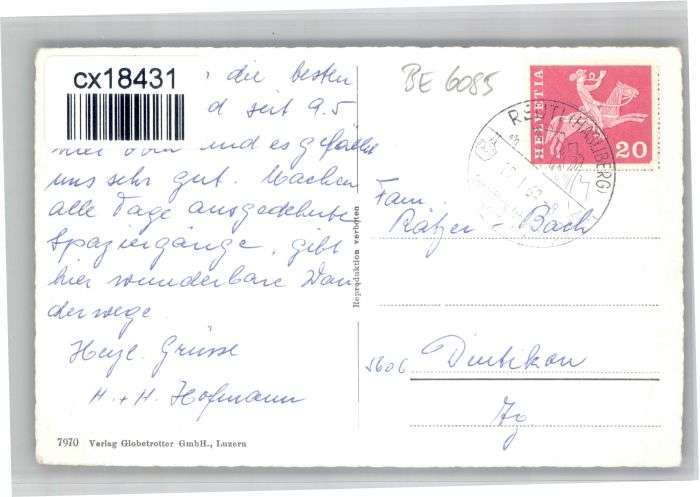 cx18431
die besten
seit 9.5
hier oben und es gefällt
uns sehr gut. Machen
alle Tage ausgedehnte
Spaziergänge, gibt
hier wunderbare Wan
derwege.
Herzl. Grüsse
H. + H. Hofmann
7970 Verlag Globetrotter GmbH., Luzern
Reproduktion verboten
BE 6085
HELVETIA
20
REUTI (HASLIBERG)
Fam.
Rätzer - Bach
5606 Dintikon
Ag